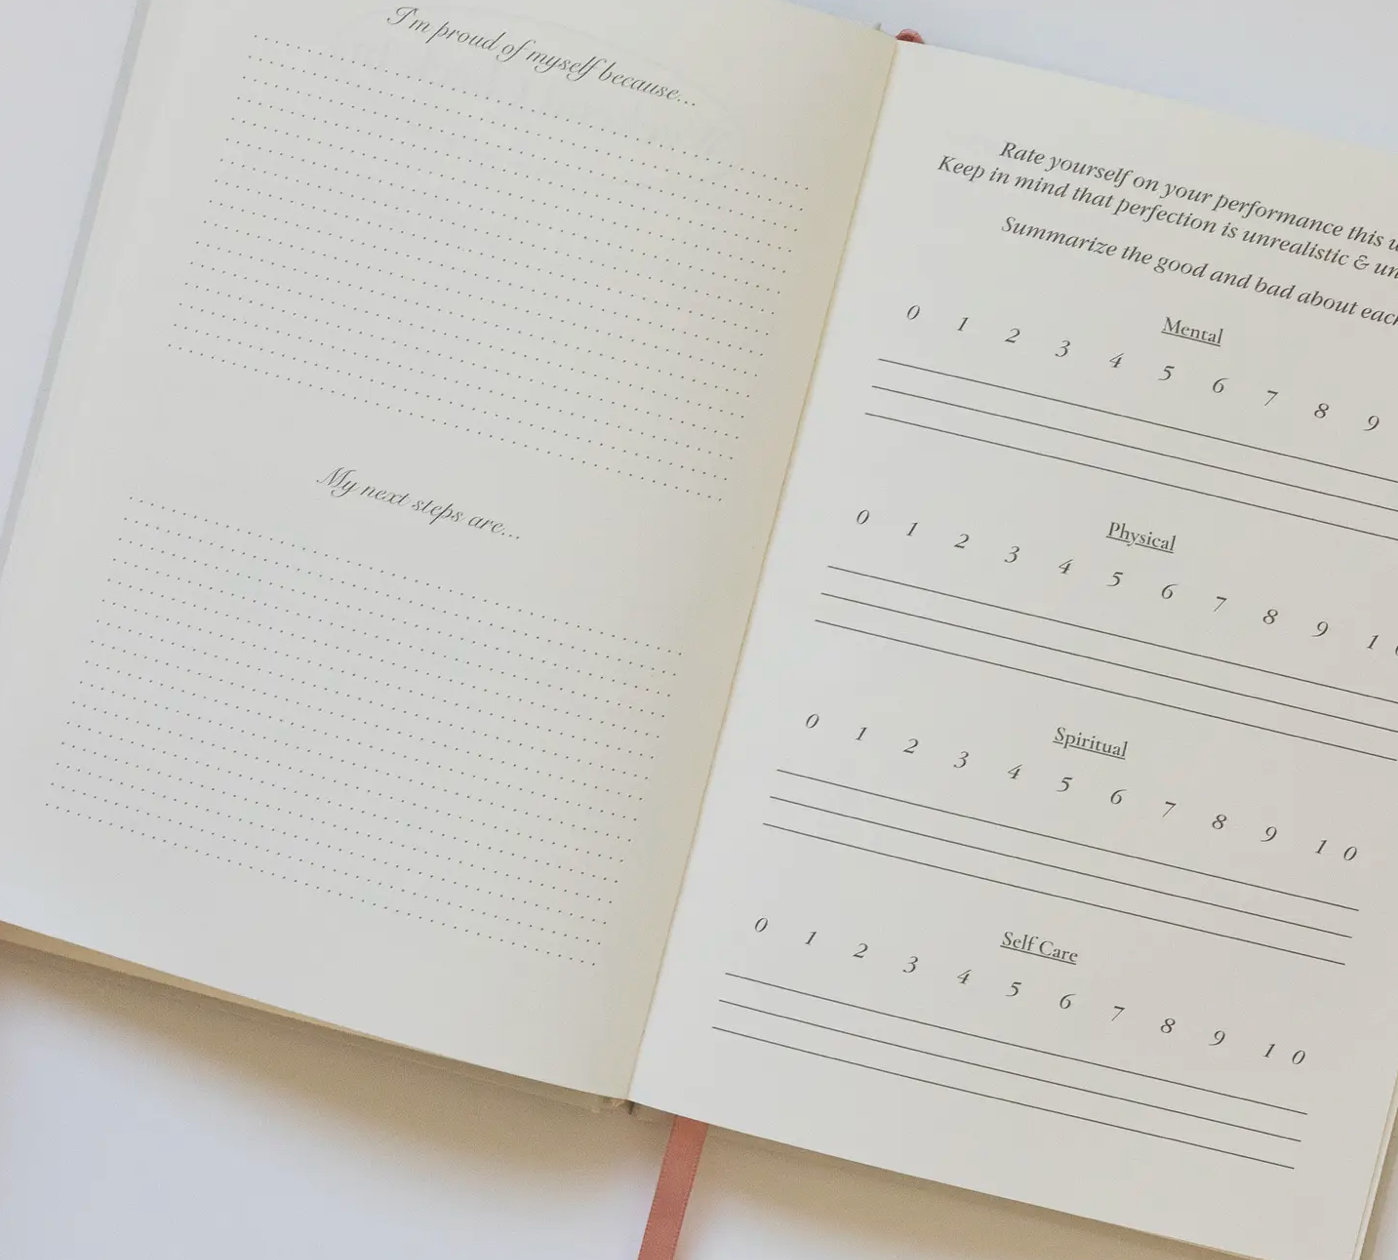 I'm proud of myself because...
My next steps are...
Rate yourself on your performance this
Keep in mind that perfection is unrealistic &
Summarize the good and bad about each
Mental
0 1 2 3 4 5 6 7 8 9
Physical
0 1 2 3 4 5 6 7 8 9 1
Spiritual
0 1 2 3 4 5 6 7 8 9 10
Self Care
0 1 2 3 4 5 6 7 8 9 10